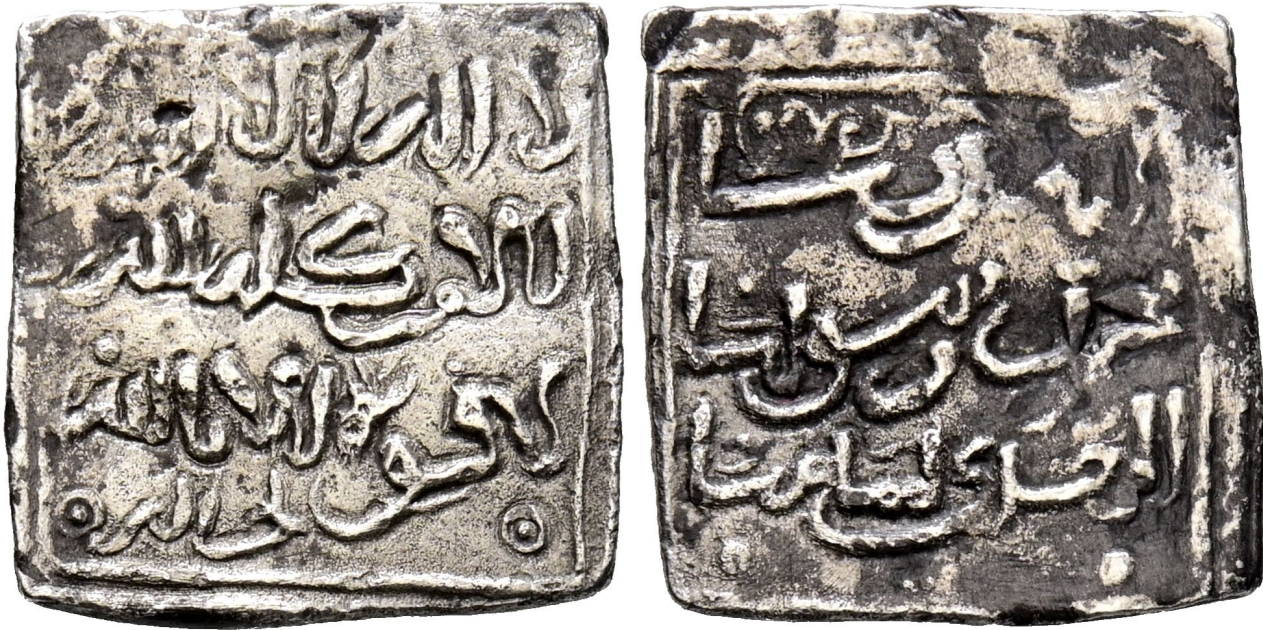 لا اله الا الله
الامر كله لله
لا قوة الا بالله
الله ربنا
محمد رسولنا
المهدي امامنا